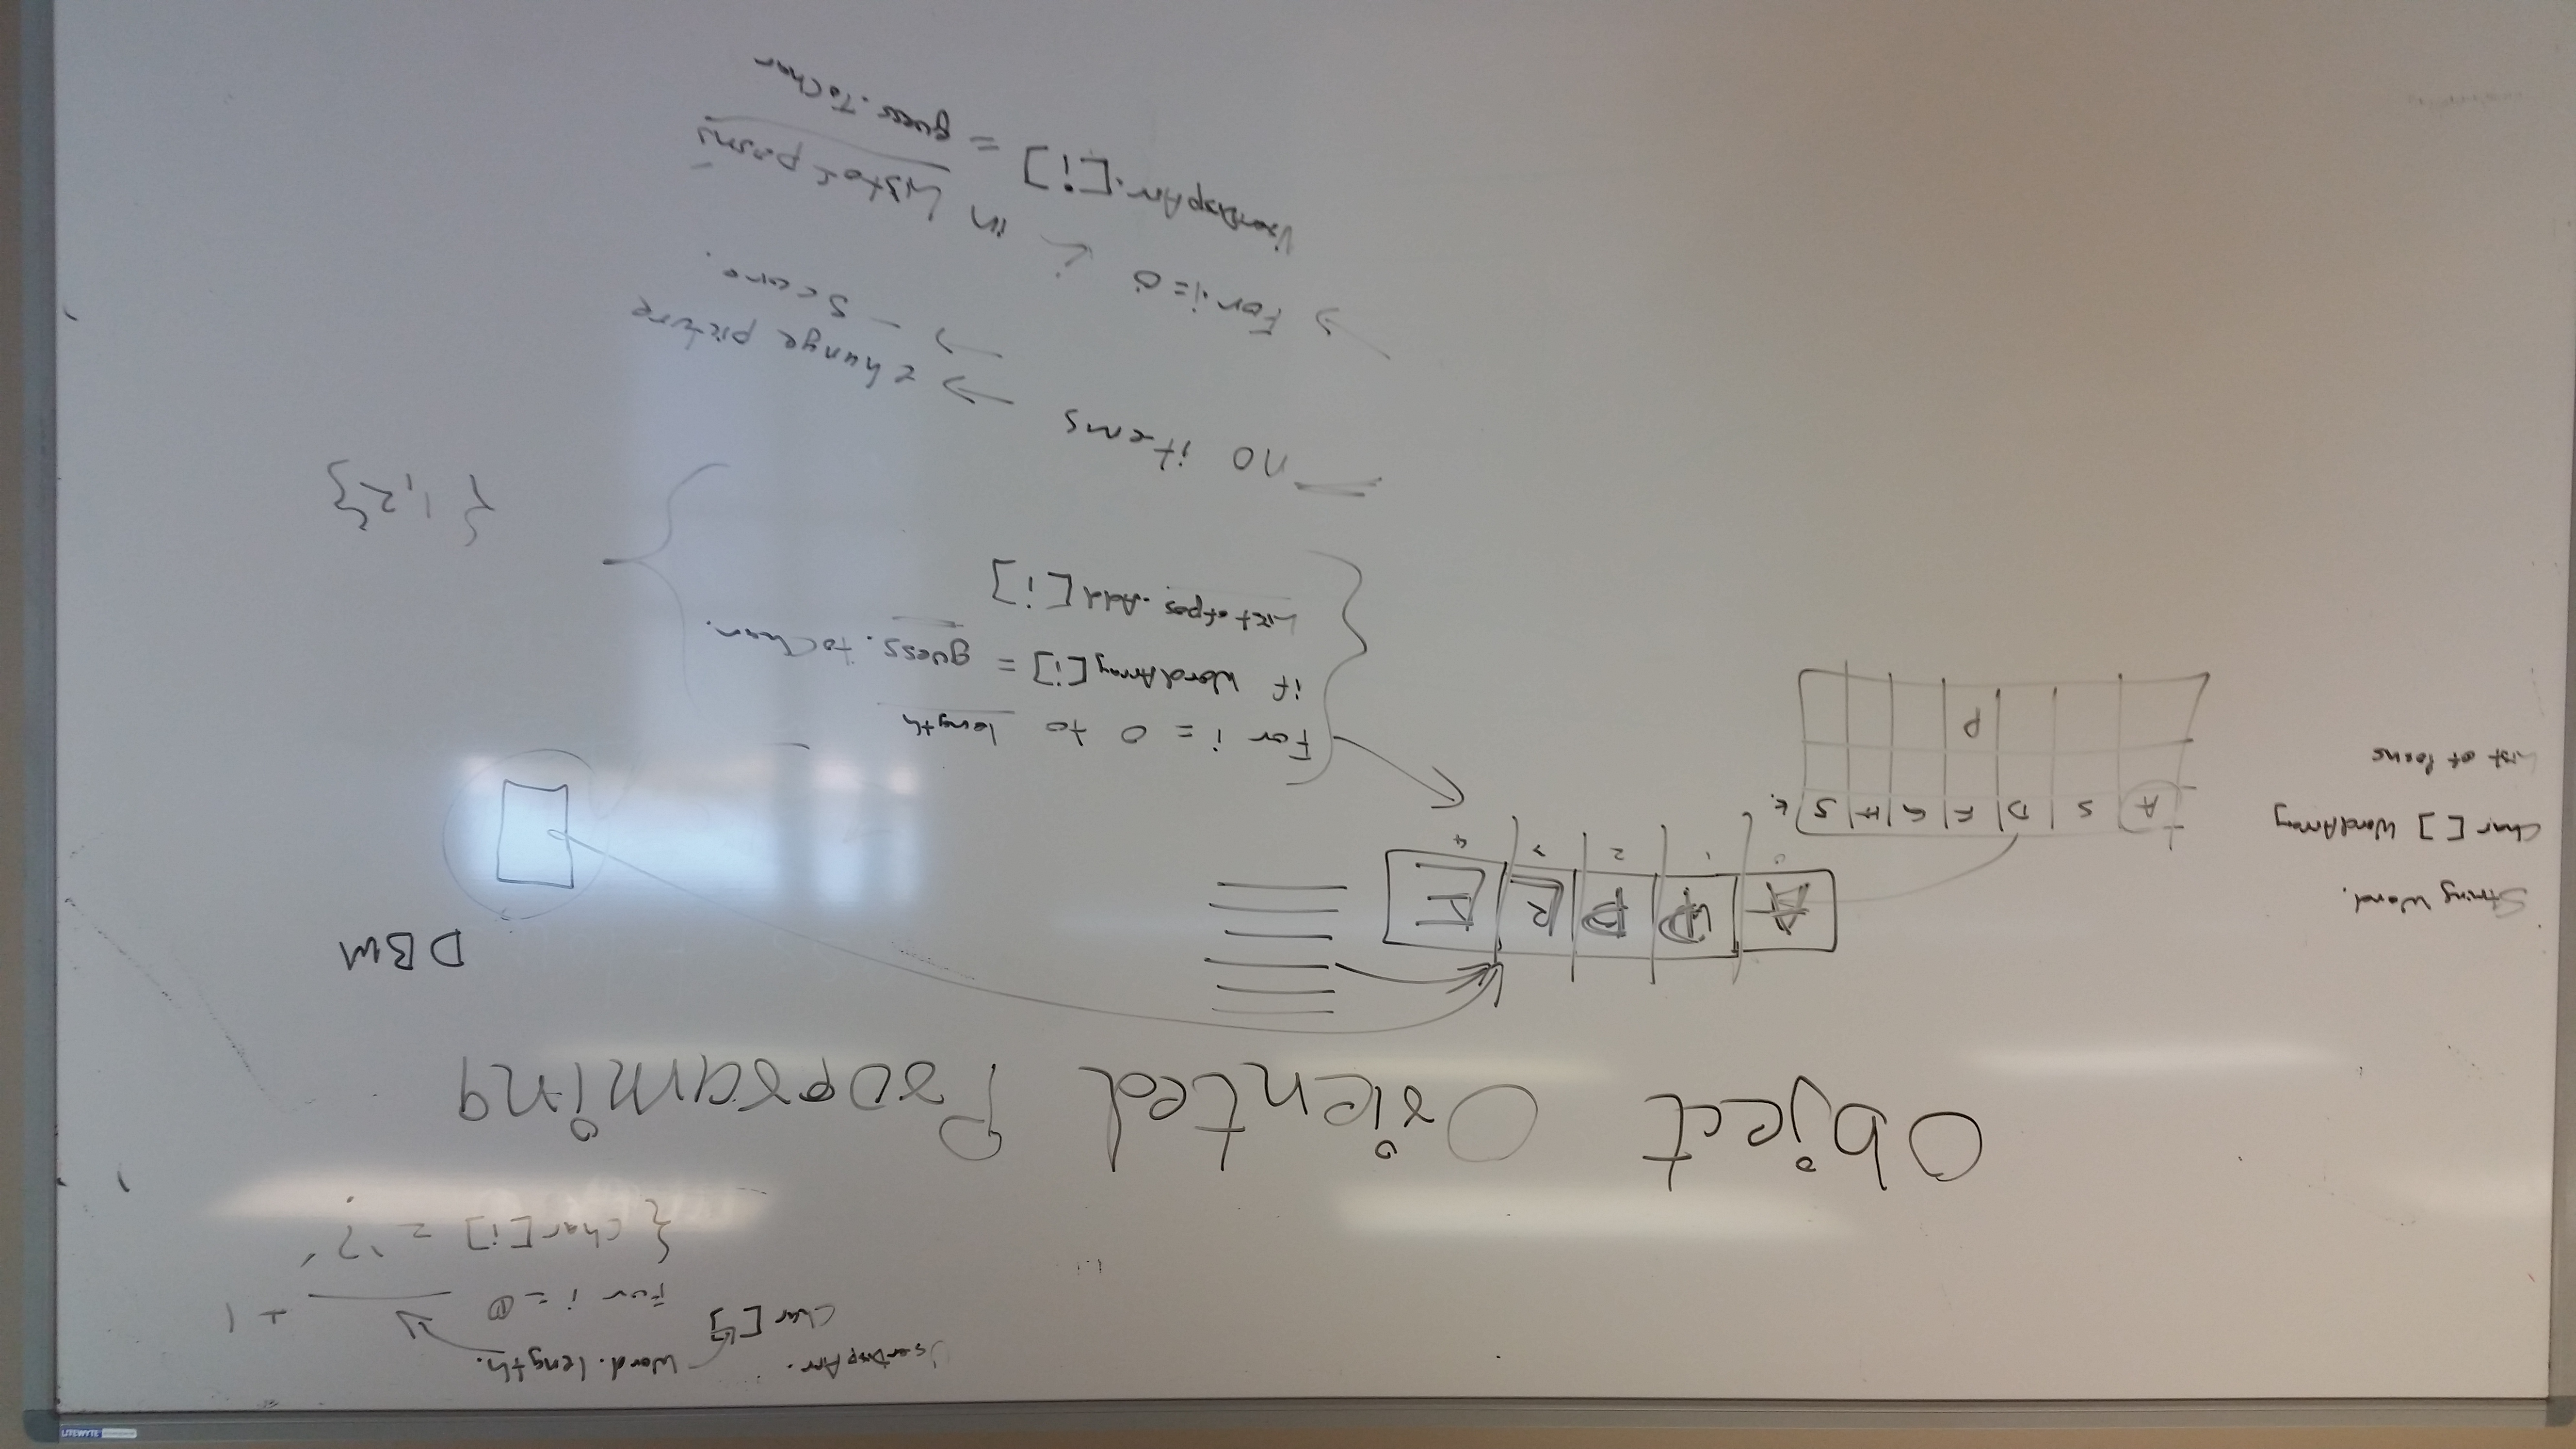 UserDispArr.
Word.length.
Char [ ]
For i = 0 ____ + 1
{ Char[i] = '?'
Object Oriented Programing
DBM
A P P L E
0 1 2 3 4
String Word.
Char [ ] WordArray
List of posns
A S D F G H J K.
P
For i = 0 to length
if WordArray[i] = guess.toChar.
Listofpos.Add[i]
{1,2}
no items
→ change picture
→ - Score.
→ For i=0 i in Listofposns
UserDispArr.[i] = guess.ToChar